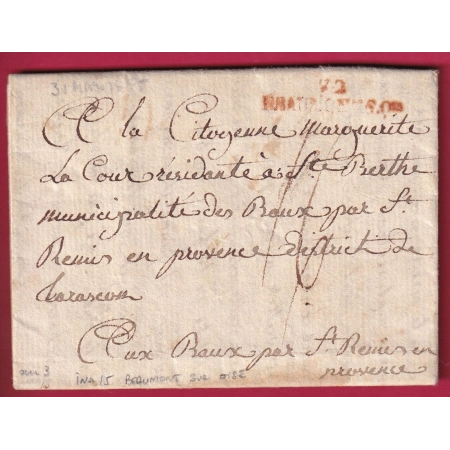 31 mars
72
A la Citoyenne Marguerite
La Cour résidante à Ste Berthe
municipalité des Baux par St.
Remis en provence district de
tarascom
Aux Baux par St. Remis en
provence
IN 15 BEAUMONT SUR OISE